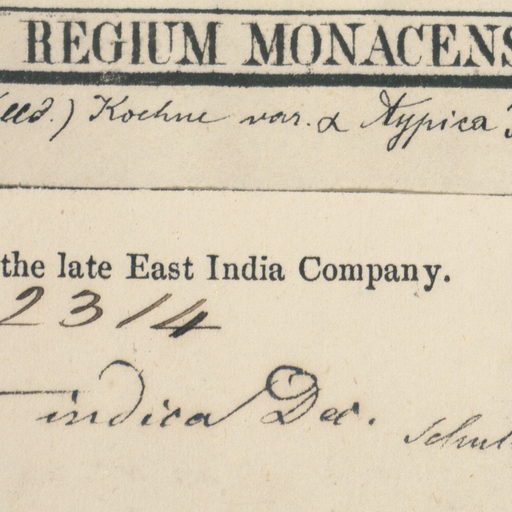 REGIUM MONACENS
eed.) Koehne var. α typica
the late East India Company.
2314
indica Dec.
Schul